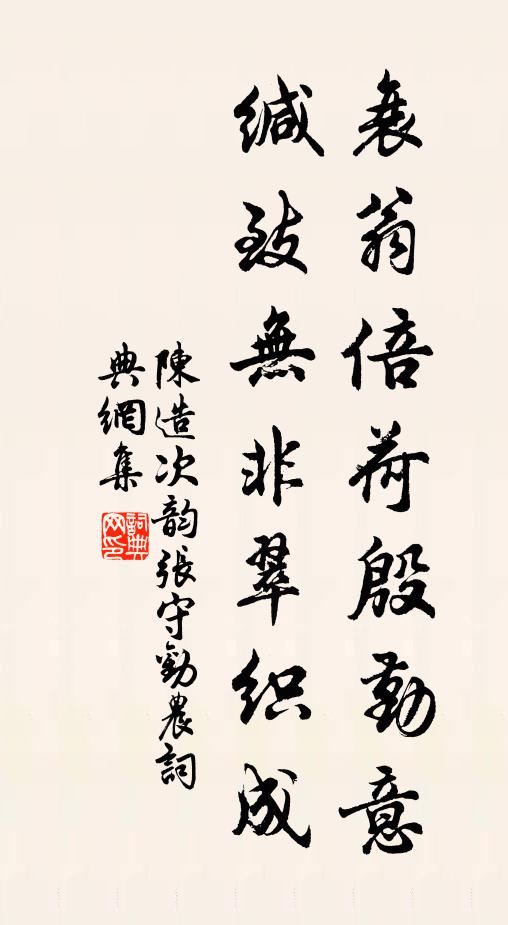 衰翁倍荷殷勤意
缄致無非翠织成
陳造次韵張守勸農詞
典網集
詞典
网印